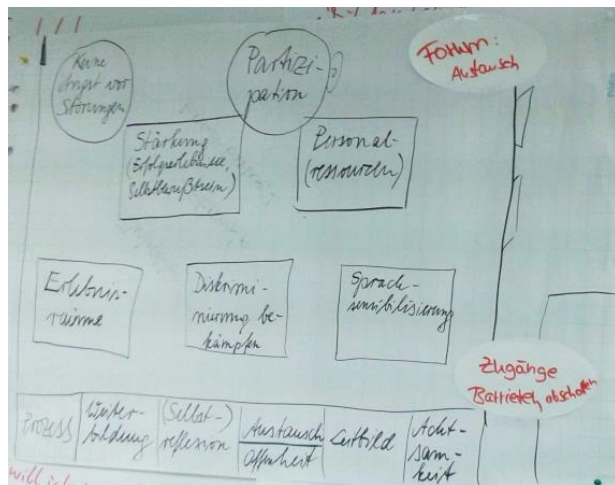 Keine
Angst vor
Störungen
Partizi-
pation
Forum:
Austausch
Stärkung
(Erfolgserlebnisse,
Selbstbewußtsein)
Personal-
(ressourcen)
Erlebnis-
räume
Diskrimi-
nierung be-
kämpfen
Sprach-
sensibilisierung
Zugänge
Barrieren abschaffen
Prozess
Weiter-
bildung
(Selbst-)
reflexion
Austausch
Offenheit
Leitbild
Acht-
sam-
keit